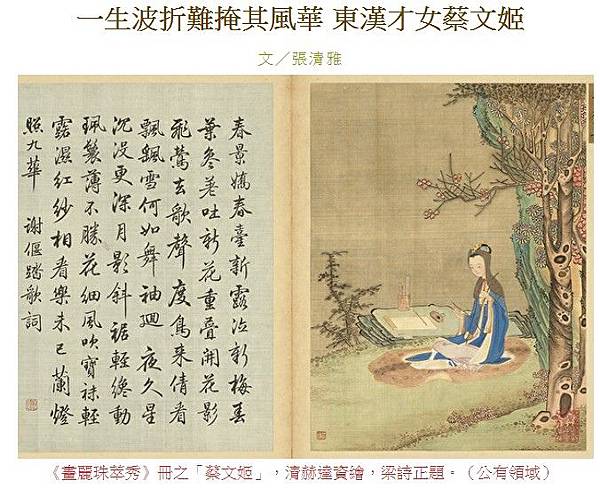 一生波折難掩其風華 東漢才女蔡文姬
文／張清雅
春景嬌春臺新露泣新梅春
葉參差吐新花重疊開花影
飛鶯去歌聲度鳥來倩看
飄颻雪何如舞袖迴 夜久星
沉沒更深月影斜裾輕纔動
珮鬟薄不勝花細風吹寶袜輕
露濕紅紗相看樂未已蘭燈
照九華 謝偃踏歌詞
《畫麗珠萃秀》冊之「蔡文姬」，清赫達資繪，梁詩正題。（公有領域）